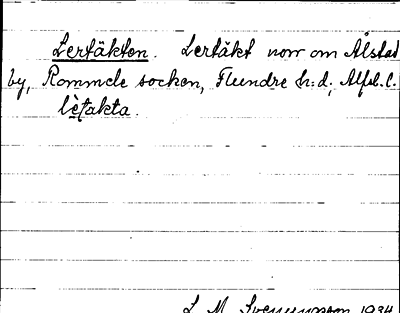 Lertäkten. Lertäkt norr om Ålstad
by, Rommele socken, Flundre h:d, Älfsb. l.
lètakta.
L. M. Svenungsson 1934